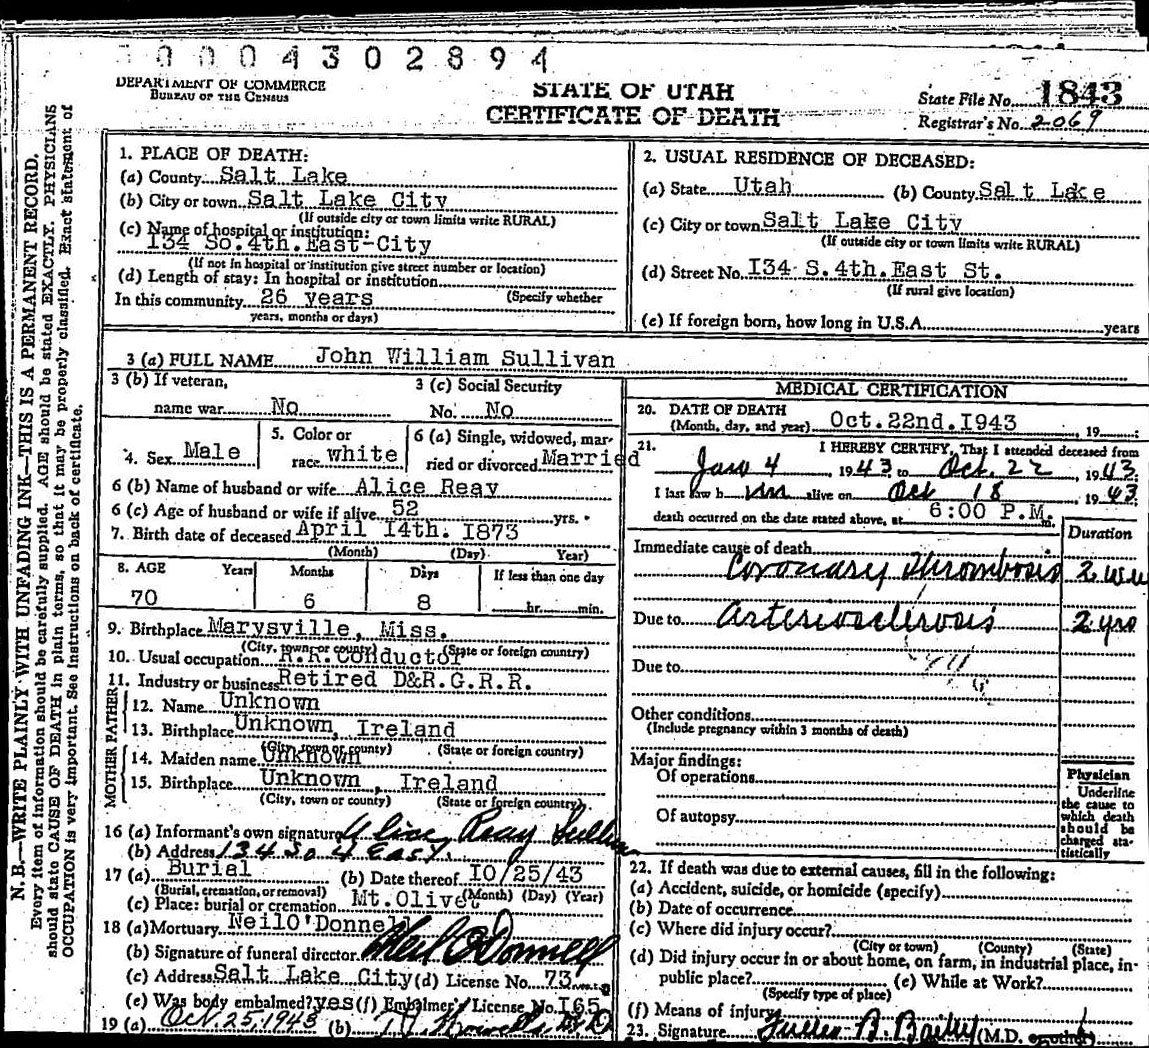 3 0 0 0 4 3 0 2 8 9 4
DEPARTMENT OF COMMERCE
BUREAU OF THE CENSUS
STATE OF UTAH
CERTIFICATE OF DEATH
State File No. 1843
Registrar's No. 2069
N. B.—WRITE PLAINLY WITH UNFADING INK—THIS IS A PERMANENT RECORD.
Every item of information should be carefully supplied. AGE should be stated EXACTLY. PHYSICIANS
should state CAUSE OF DEATH in plain terms, so that it may be properly classified. Exact statement of
OCCUPATION is very important. See instructions on back of certificate.
1. PLACE OF DEATH:
(a) County Salt Lake
(b) City or town Salt Lake City
(If outside city or town limits write RURAL)
(c) Name of hospital or institution:
I34 So.4th.East-City
(If not in hospital or institution give street number or location)
(d) Length of stay: In hospital or institution
In this community 26 years (Specify whether
years, months or days)
2. USUAL RESIDENCE OF DECEASED:
(a) State Utah (b) County Salt Lake
(c) City or town Salt Lake City
(If outside city or town limits write RURAL)
(d) Street No. I34 S.4th.East St.
(If rural give location)
(e) If foreign born, how long in U.S.A. years
3 (a) FULL NAME John William Sullivan
3 (b) If veteran, 3 (c) Social Security
name war No No. No
4. Sex Male 5. Color or race white 6 (a) Single, widowed, married or divorced Married
6 (b) Name of husband or wife Alice Reay
6 (c) Age of husband or wife if alive 52 yrs.
7. Birth date of deceased April I4th. I873
(Month) (Day) Year)
8. AGE Years Months Days If less than one day
70 6 8 hr. min.
9. Birthplace Marysville, Miss.
(City, town, or county) (State or foreign country)
10. Usual occupation R.R.Conductor
11. Industry or business Retired D&R.G.R.R.
FATHER
12. Name Unknown
13. Birthplace Unknown, Ireland
(City, town or county) (State or foreign country)
MOTHER
14. Maiden name Unknown
15. Birthplace Unknown, Ireland
(City, town or county) (State or foreign country)
16 (a) Informant's own signature Alice Reay Sullivan
(b) Address 134 So 4 East.
17 (a) Burial (b) Date thereof IO/25/43
(Burial, cremation, or removal) (Month) (Day) (Year)
(c) Place: burial or cremation Mt.Olivet
18 (a) Mortuary NeilO'Donnell
(b) Signature of funeral director Neil O'Donnell
(c) Address Salt Lake City (d) License No. 73
(e) Was body embalmed? yes (f) Embalmer's License No. I65
19 (a) Oct. 25, 1943 (b)
MEDICAL CERTIFICATION
20. DATE OF DEATH
(Month, day, and year) Oct.22nd.I943 , 19
21. I HEREBY CERTIFY, That I attended deceased from
Jan 4 1943 to Oct. 22, 1943.
I last saw him alive on Oct 18 1943
death occurred on the date stated above, at 6:00 P.M. m.
Duration
Immediate cause of death
Coronary Thrombosis 2
Due to Arteriosclerosis 2 yrs
Due to
Other conditions
(Include pregnancy within 3 months of death)
Major findings:
Of operations
Of autopsy
Physician
Underline
the cause to
which death
should be
charged sta-
tistically
22. If death was due to external causes, fill in the following:
(a) Accident, suicide, or homicide (specify)
(b) Date of occurrence
(c) Where did injury occur?
(City or town) (County) (State)
(d) Did injury occur in or about home, on farm, in industrial place, in-
public place? (e) While at Work?
(Specify type of place)
(f) Means of injury
23. Signature B. Bailey (M.D. or other)